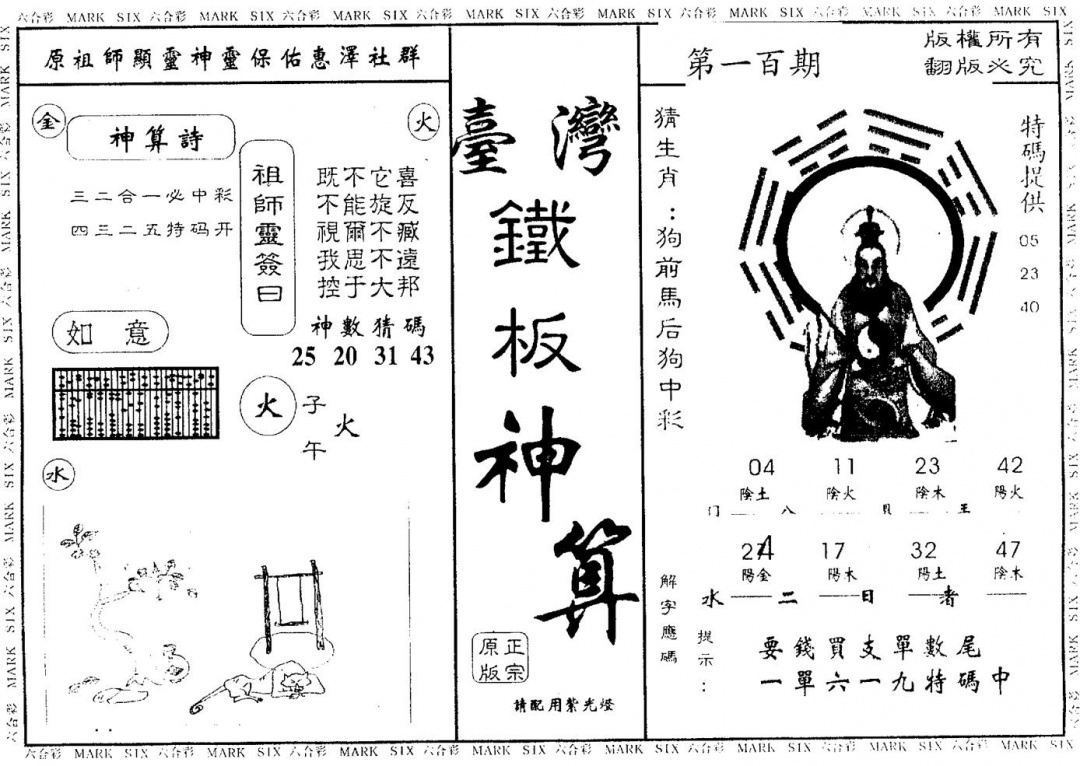 六合彩 MARK SIX 六合彩 MARK SIX 六合彩 MARK SIX 六合彩 MARK SIX 六合彩 MARK SIX 六合彩 MARK SIX 六合彩 MARK SIX 六合彩 MARK SIX
原祖師顯靈神靈保佑惠澤社群
金
火
神算詩
三二合一必中彩
四三二五特码开
祖師靈簽曰
既不它喜
不能旋反
視爾不臧
我思不遠
控于大邦
神數猜碼
25 20 31 43
如意
火
子
火
午
水
臺灣
鐵板神算
正宗
原版
請配用紫光燈
第一百期
版權所有
翻版必究
猜生肖：狗前馬后狗中彩
特碼提供
05
23
40
04 11 23 42
陰土 陰火 陰木 陽火
门 八 貝 王
17 32 47
陽金 陽木 陽土 陰木
水 二 日 者
解字應碼
提示：
要錢買支單數尾
一單六一九特碼中
六合彩 MARK SIX 六合彩 MARK SIX 六合彩 MARK SIX 六合彩 MARK SIX 六合彩 MARK SIX 六合彩 MARK SIX 六合彩 MARK SIX 六合彩 MARK SIX